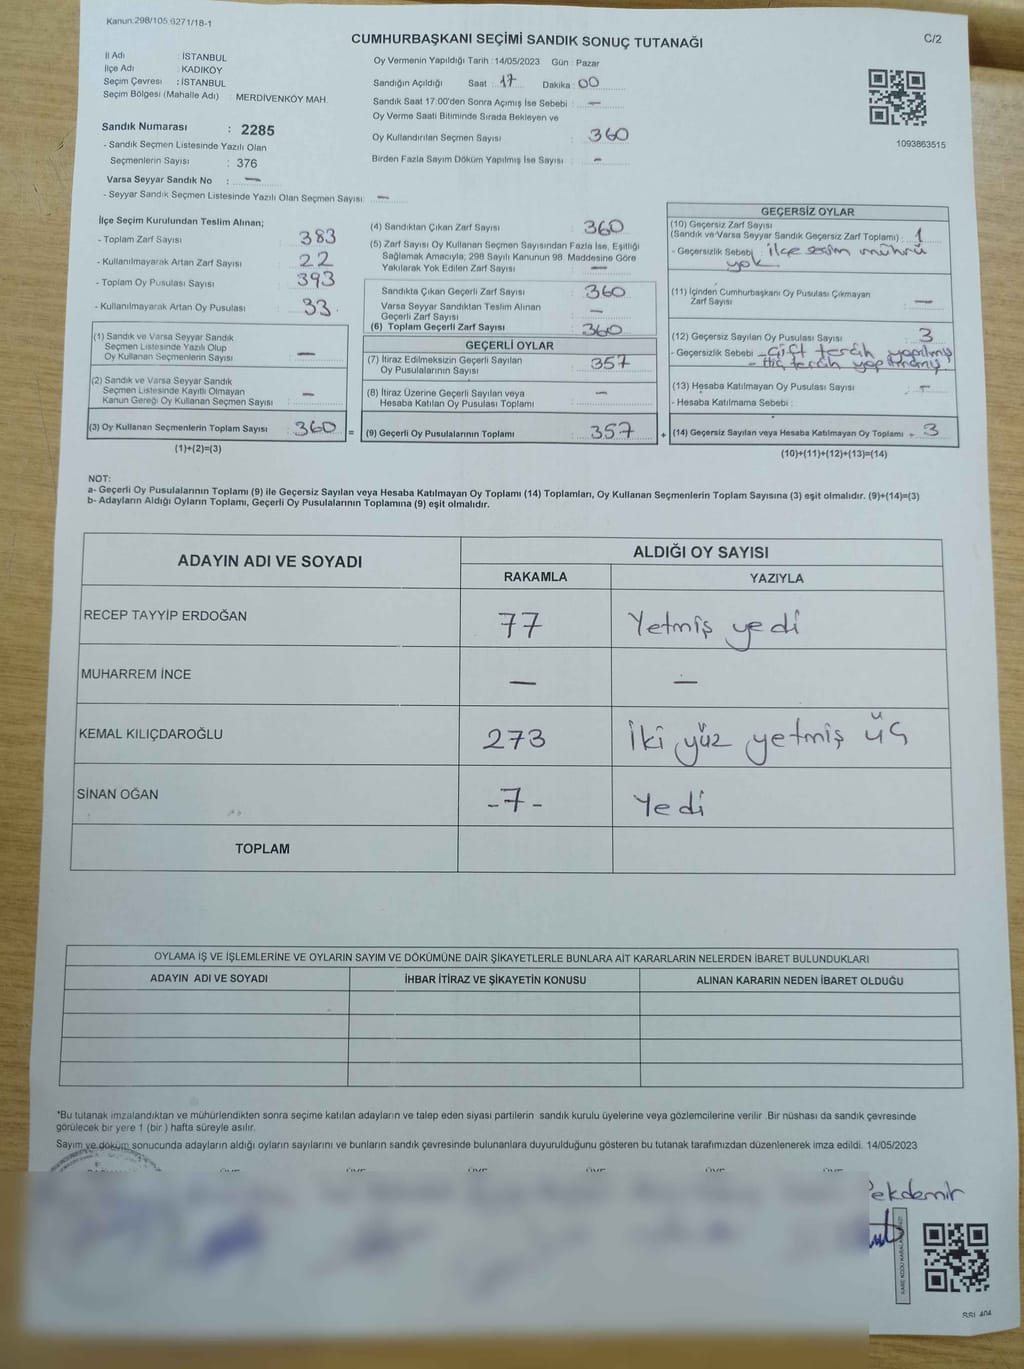 Kanun.298/105.6271/18-1
C/2
CUMHURBAŞKANI SEÇİMİ SANDIK SONUÇ TUTANAĞI
İl Adı : İSTANBUL
İlçe Adı : KADIKÖY
Seçim Çevresi : İSTANBUL
Seçim Bölgesi (Mahalle Adı) : MERDİVENKÖY MAH.
Sandık Numarası : 2285
- Sandık Seçmen Listesinde Yazılı Olan
Seçmenlerin Sayısı : 376
Varsa Seyyar Sandık No : —
- Seyyar Sandık Seçmen Listesinde Yazılı Olan Seçmen Sayısı: —
Oy Vermenin Yapıldığı Tarih :14/05/2023 Gün : Pazar
Sandığın Açıldığı Saat : 17 Dakika : 00
Sandık Saat 17:00'den Sonra Açımış İse Sebebi : —
Oy Verme Saati Bitiminde Sırada Bekleyen ve
Oy Kullandırılan Seçmen Sayısı : 360
Birden Fazla Sayım Döküm Yapılmış İse Sayısı : -
1093863515
İlçe Seçim Kurulundan Teslim Alınan;
- Toplam Zarf Sayısı : 383
- Kullanılmayarak Artan Zarf Sayısı : 22
- Toplam Oy Pusulası Sayısı : 393
- Kullanılmayarak Artan Oy Pusulası : 33
(1) Sandık ve Varsa Seyyar Sandık
Seçmen Listesinde Yazılı Olup
Oy Kullanan Seçmenlerin Sayısı : —
(2) Sandık ve Varsa Seyyar Sandık
Seçmen Listesinde Kayıtlı Olmayan
Kanun Gereği Oy Kullanan Seçmen Sayısı : -
(3) Oy Kullanan Seçmenlerin Toplam Sayısı : 360 =
(1)+(2)=(3)
(4) Sandıktan Çıkan Zarf Sayısı : 360
(5) Zarf Sayısı Oy Kullanan Seçmen Sayısından Fazla İse, Eşitliği
Sağlamak Amacıyla, 298 Sayılı Kanunun 98. Maddesine Göre
Yakılarak Yok Edilen Zarf Sayısı : —
Sandıkta Çıkan Geçerli Zarf Sayısı : 360
Varsa Seyyar Sandıktan Teslim Alınan
Geçerli Zarf Sayısı : —
(6) Toplam Geçerli Zarf Sayısı : 360
GEÇERLİ OYLAR
(7) İtiraz Edilmeksizin Geçerli Sayılan
Oy Pusulalarının Sayısı : 357
(8) İtiraz Üzerine Geçerli Sayılan veya
Hesaba Katılan Oy Pusulası Toplamı : —
(9) Geçerli Oy Pusulalarının Toplamı : 357 +
GEÇERSİZ OYLAR
(10) Geçersiz Zarf Sayısı
(Sandık ve Varsa Seyyar Sandık Geçersiz Zarf Toplamı) : 1
- Geçersizlik Sebebi : ilçe seçim mührü
yok
(11) İçinden Cumhurbaşkanı Oy Pusulası Çıkmayan
Zarf Sayısı : —
(12) Geçersiz Sayılan Oy Pusulası Sayısı : 3
- Geçersizlik Sebebi - Çift tercih yapılmış
- Hiç tercih yapılmamış
(13) Hesaba Katılmayan Oy Pusulası Sayısı : -
- Hesaba Katılmama Sebebi :
(14) Geçersiz Sayılan veya Hesaba Katılmayan Oy Toplamı : 3
(10)+(11)+(12)+(13)=(14)
NOT:
a- Geçerli Oy Pusulalarının Toplamı (9) ile Geçersiz Sayılan veya Hesaba Katılmayan Oy Toplamı (14) Toplamları, Oy Kullanan Seçmenlerin Toplam Sayısına (3) eşit olmalıdır. (9)+(14)=(3)
b- Adayların Aldığı Oyların Toplamı, Geçerli Oy Pusulalarının Toplamına (9) eşit olmalıdır.
ADAYIN ADI VE SOYADI
ALDIĞI OY SAYISI
RAKAMLA YAZIYLA
RECEP TAYYİP ERDOĞAN 77 Yetmiş yedi
MUHARREM İNCE — —
KEMAL KILIÇDAROĞLU 273 İki yüz yetmiş üç
SİNAN OĞAN -7- Yedi
TOPLAM
OYLAMA İŞ VE İŞLEMLERİNE VE OYLARIN SAYIM VE DÖKÜMÜNE DAİR ŞİKAYETLERLE BUNLARA AİT KARARLARIN NELERDEN İBARET BULUNDUKLARI
ADAYIN ADI VE SOYADI İHBAR İTİRAZ VE ŞİKAYETİN KONUSU ALINAN KARARIN NEDEN İBARET OLDUĞU
*Bu tutanak imzalandıktan ve mühürlendikten sonra seçime katılan adayların ve talep eden siyasi partilerin sandık kurulu üyelerine veya gözlemcilerine verilir .Bir nüshası da sandık çevresinde
görülecek bir yere 1 (bir ) hafta süreyle asılır.
Sayım ve döküm sonucunda adayların aldığı oyların sayılarını ve bunların sandık çevresinde bulunanlara duyurulduğunu gösteren bu tutanak tarafımızdan düzenlenerek imza edildi. 14/05/2023
ekdemir